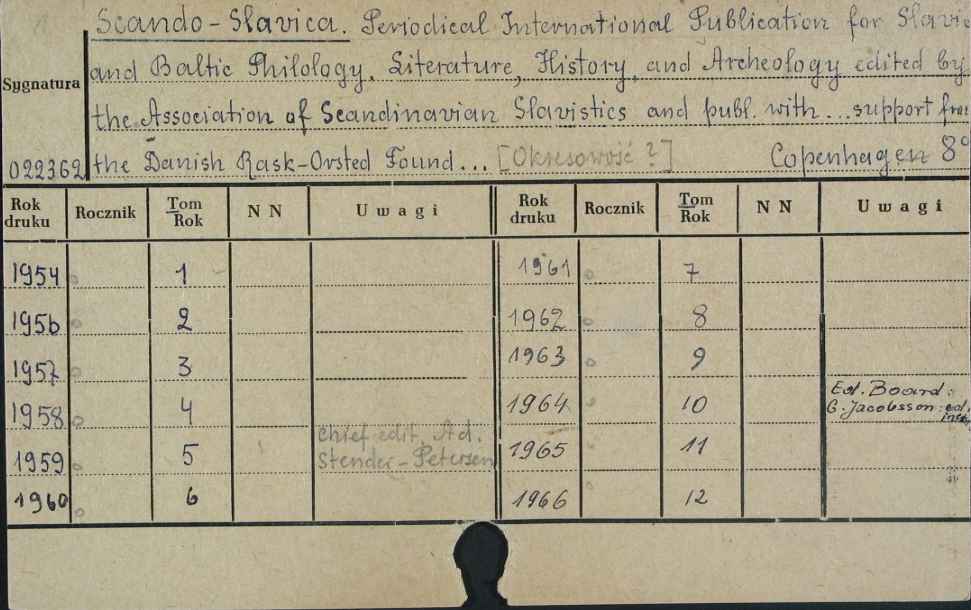 Scando-Slavica. Periodical International Publication for Slavic
Sygnatura and Baltic Philology, Literature, History, and Archeology edited by
the Association of Scandinavian Slavistics and publ. with... support from
022362 the Danish Rask-Orsted Found... [Okresowość?] Copenhagen 8°
Rok druku Rocznik Tom Rok NN Uwagi Rok druku Rocznik Tom Rok NN Uwagi
1954 1 1961 7
1956 2 1962 8
1957 3 1963 9
1958 4 1964 10 Ed. Board: G. Jacobsson: ed.
1959 5 Chief edit. Ad. Stender-Petersen 1965 11
1960 6 1966 12